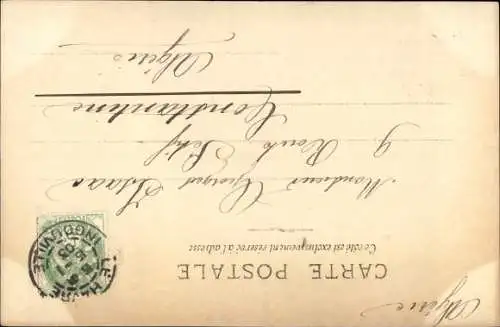 Algérie
CARTE POSTALE
Ce côté est exclusivement réservé à l'adresse
Monsieur Georges Isaac
9 Route Sétif
Constantine
Algérie
LE HAVRE
INGOUVILLE